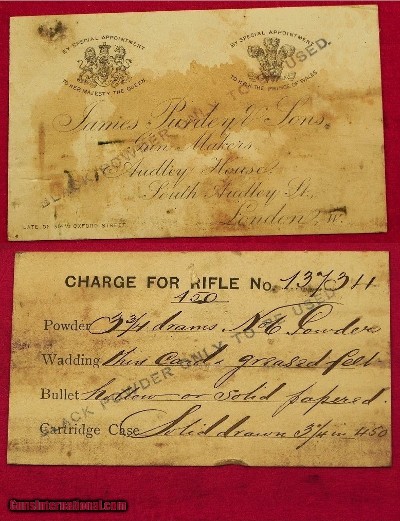 BY SPECIAL APPOINTMENT BY SPECIAL APPOINTMENT
TO HER MAJESTY THE QUEEN. TO H.R.H. THE PRINCE OF WALES
BLACK POWDER ONLY TO BE USED.
James Purdey & Sons,
Gun Makers
Audley House
South Audley St.
London, W.
LATE OF 314½ OXFORD STREET
CHARGE FOR RIFLE No. 13734
450
Powder 3 3/4 drams No 6 Powder
Wadding thin Card & greased felt
Bullet hollow or solid papered.
Cartridge Case Solid drawn 3 1/4 in 450
BLACK POWDER ONLY TO BE USED
GunsInternational.com